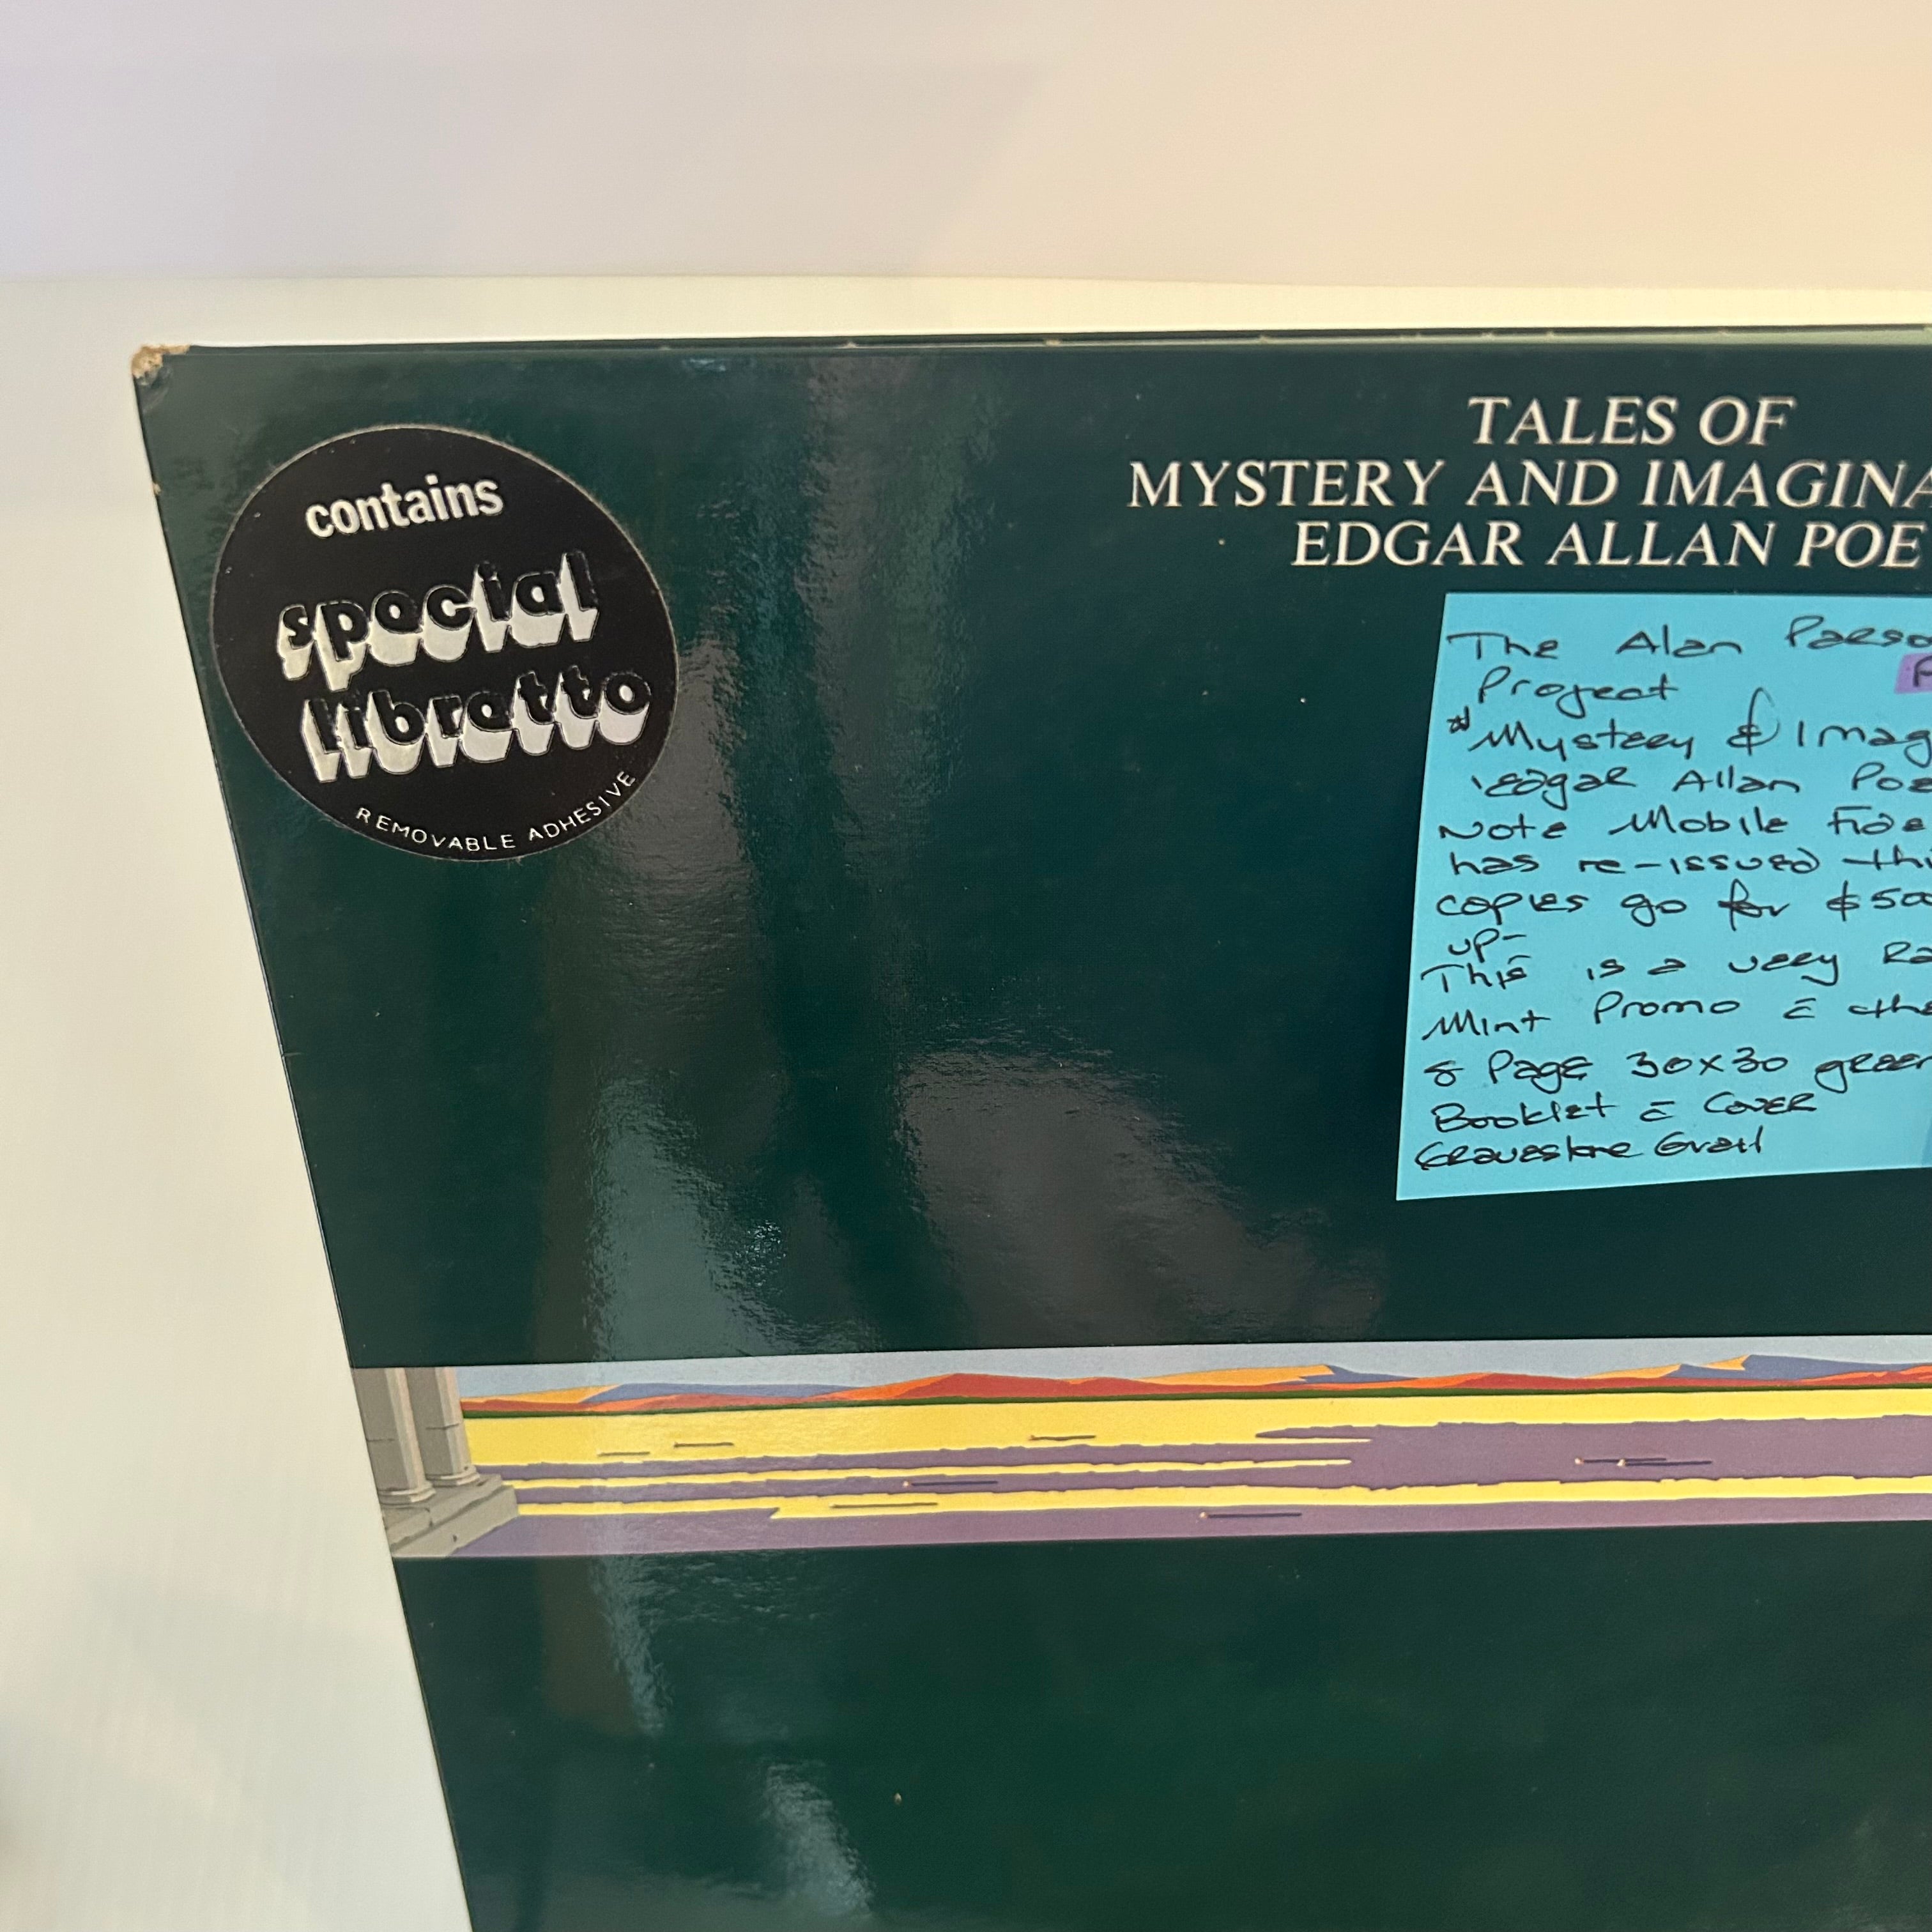 contains
special
libretto
REMOVABLE ADHESIVE
TALES OF
MYSTERY AND IMAGINA
EDGAR ALLAN POE
The Alan Parso
Project
Mystery & Imag
Edgar Allan Poe
Note Mobile Fide
has re-issued thi
copies go for $500
up-
This is a very Ra
Mint Promo c̄ the
8 Page 30x30 green
Booklet c̄ Cover
Gravestone